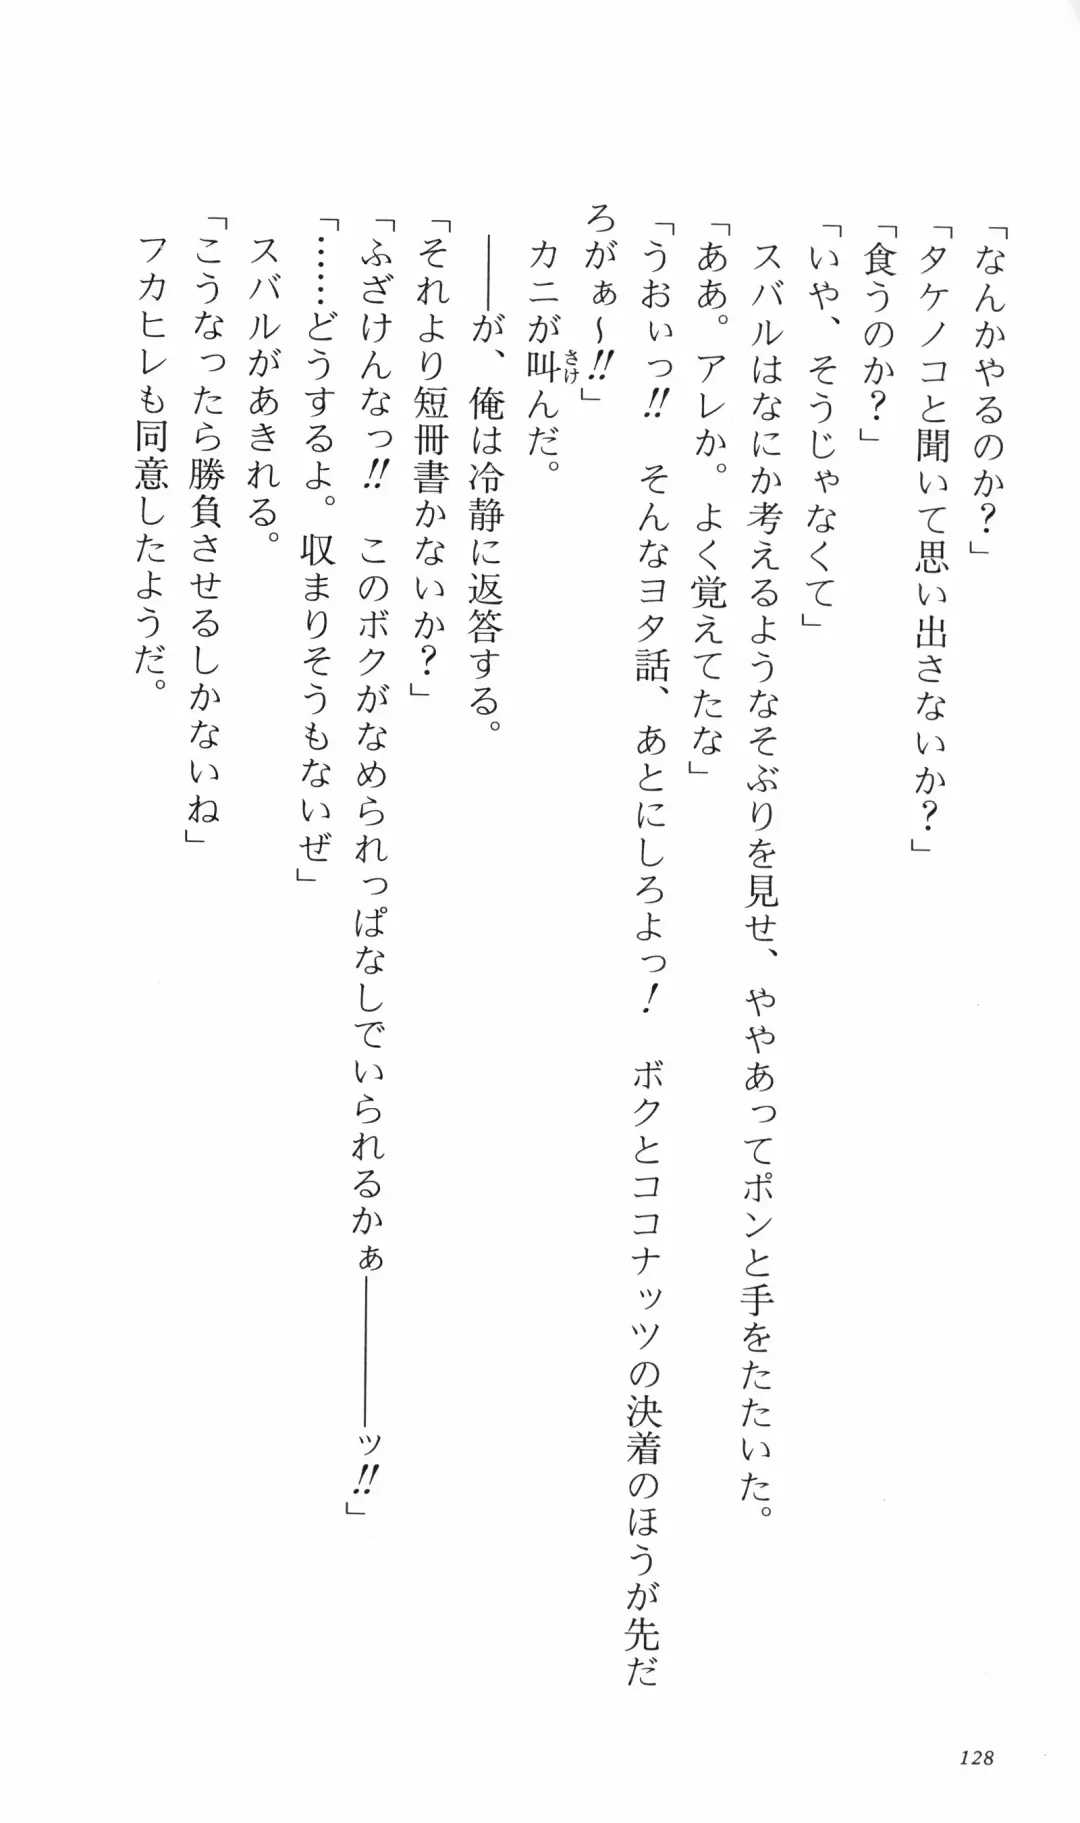 「なんかやるのか？」
「タケノコと聞いて思い出さないか？」
「食うのか？」
「いや、そうじゃなくて」
　スバルはなにか考えるようなそぶりを見せ、ややあってポンと手をたたいた。
「ああ。アレか。よく覚えてたな」
「うおぃっ‼　そんなヨタ話、あとにしろよっ！　ボクとココナッツの決着のほうが先だ
ろがぁ～‼」
　カニが叫んだ。
さけ
　――が、俺は冷静に返答する。
「それより短冊書かないか？」
「ふざけんなっ‼　このボクがなめられっぱなしでいられるかぁ――――ッ‼」
「……どうするよ。収まりそうもないぜ」
　スバルがあきれる。
「こうなったら勝負させるしかないね」
　フカヒレも同意したようだ。
128